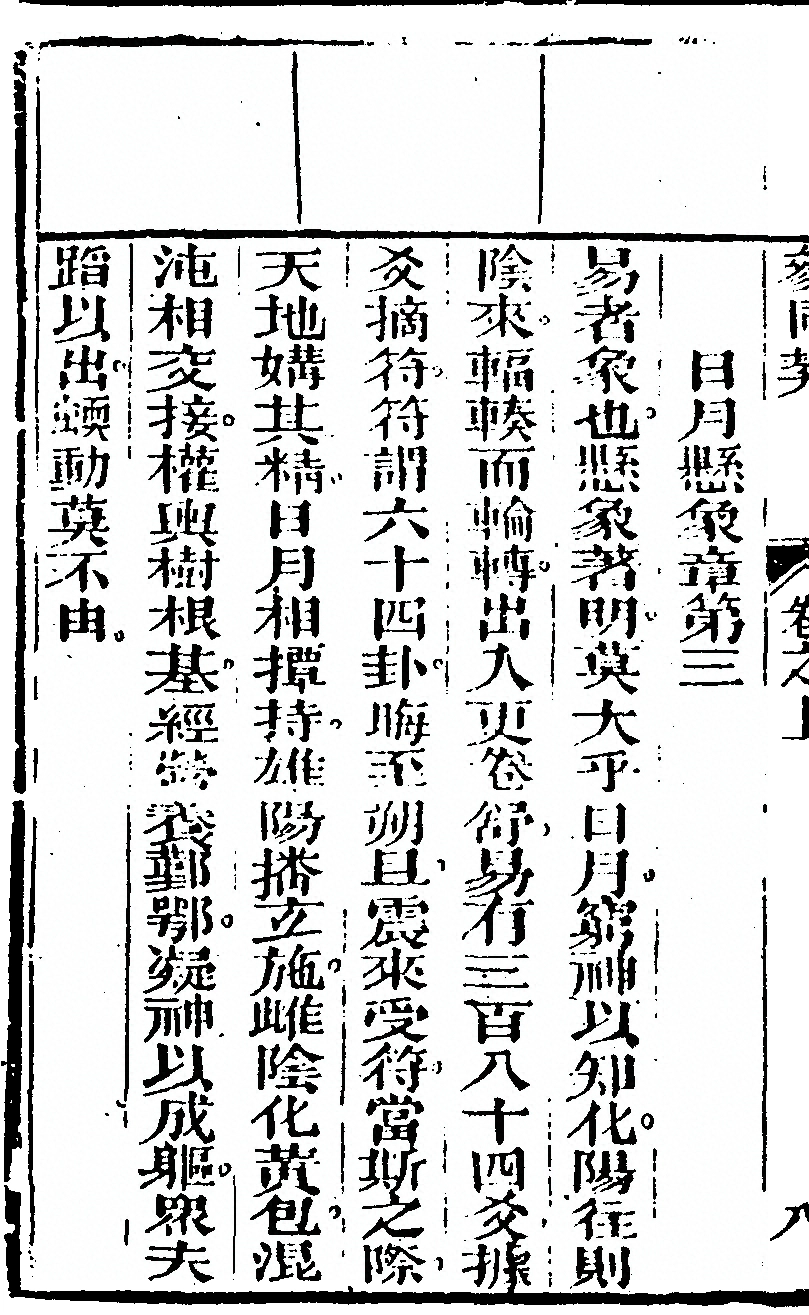 日月懸象章第三
易者象也懸象著明莫大乎日月窮神以知化陽往則
陰來輻輳而輪轉出入更卷舒易有三百八十四爻據
爻摘符符謂六十四卦晦至朔旦震來受符當斯之際
天地媾其精日月相撢持雄陽播立施雌陰化黃包混
沌相交接權輿樹根基經營養鄞鄂凝神以成軀眾夫
蹈以出蝡動莫不由